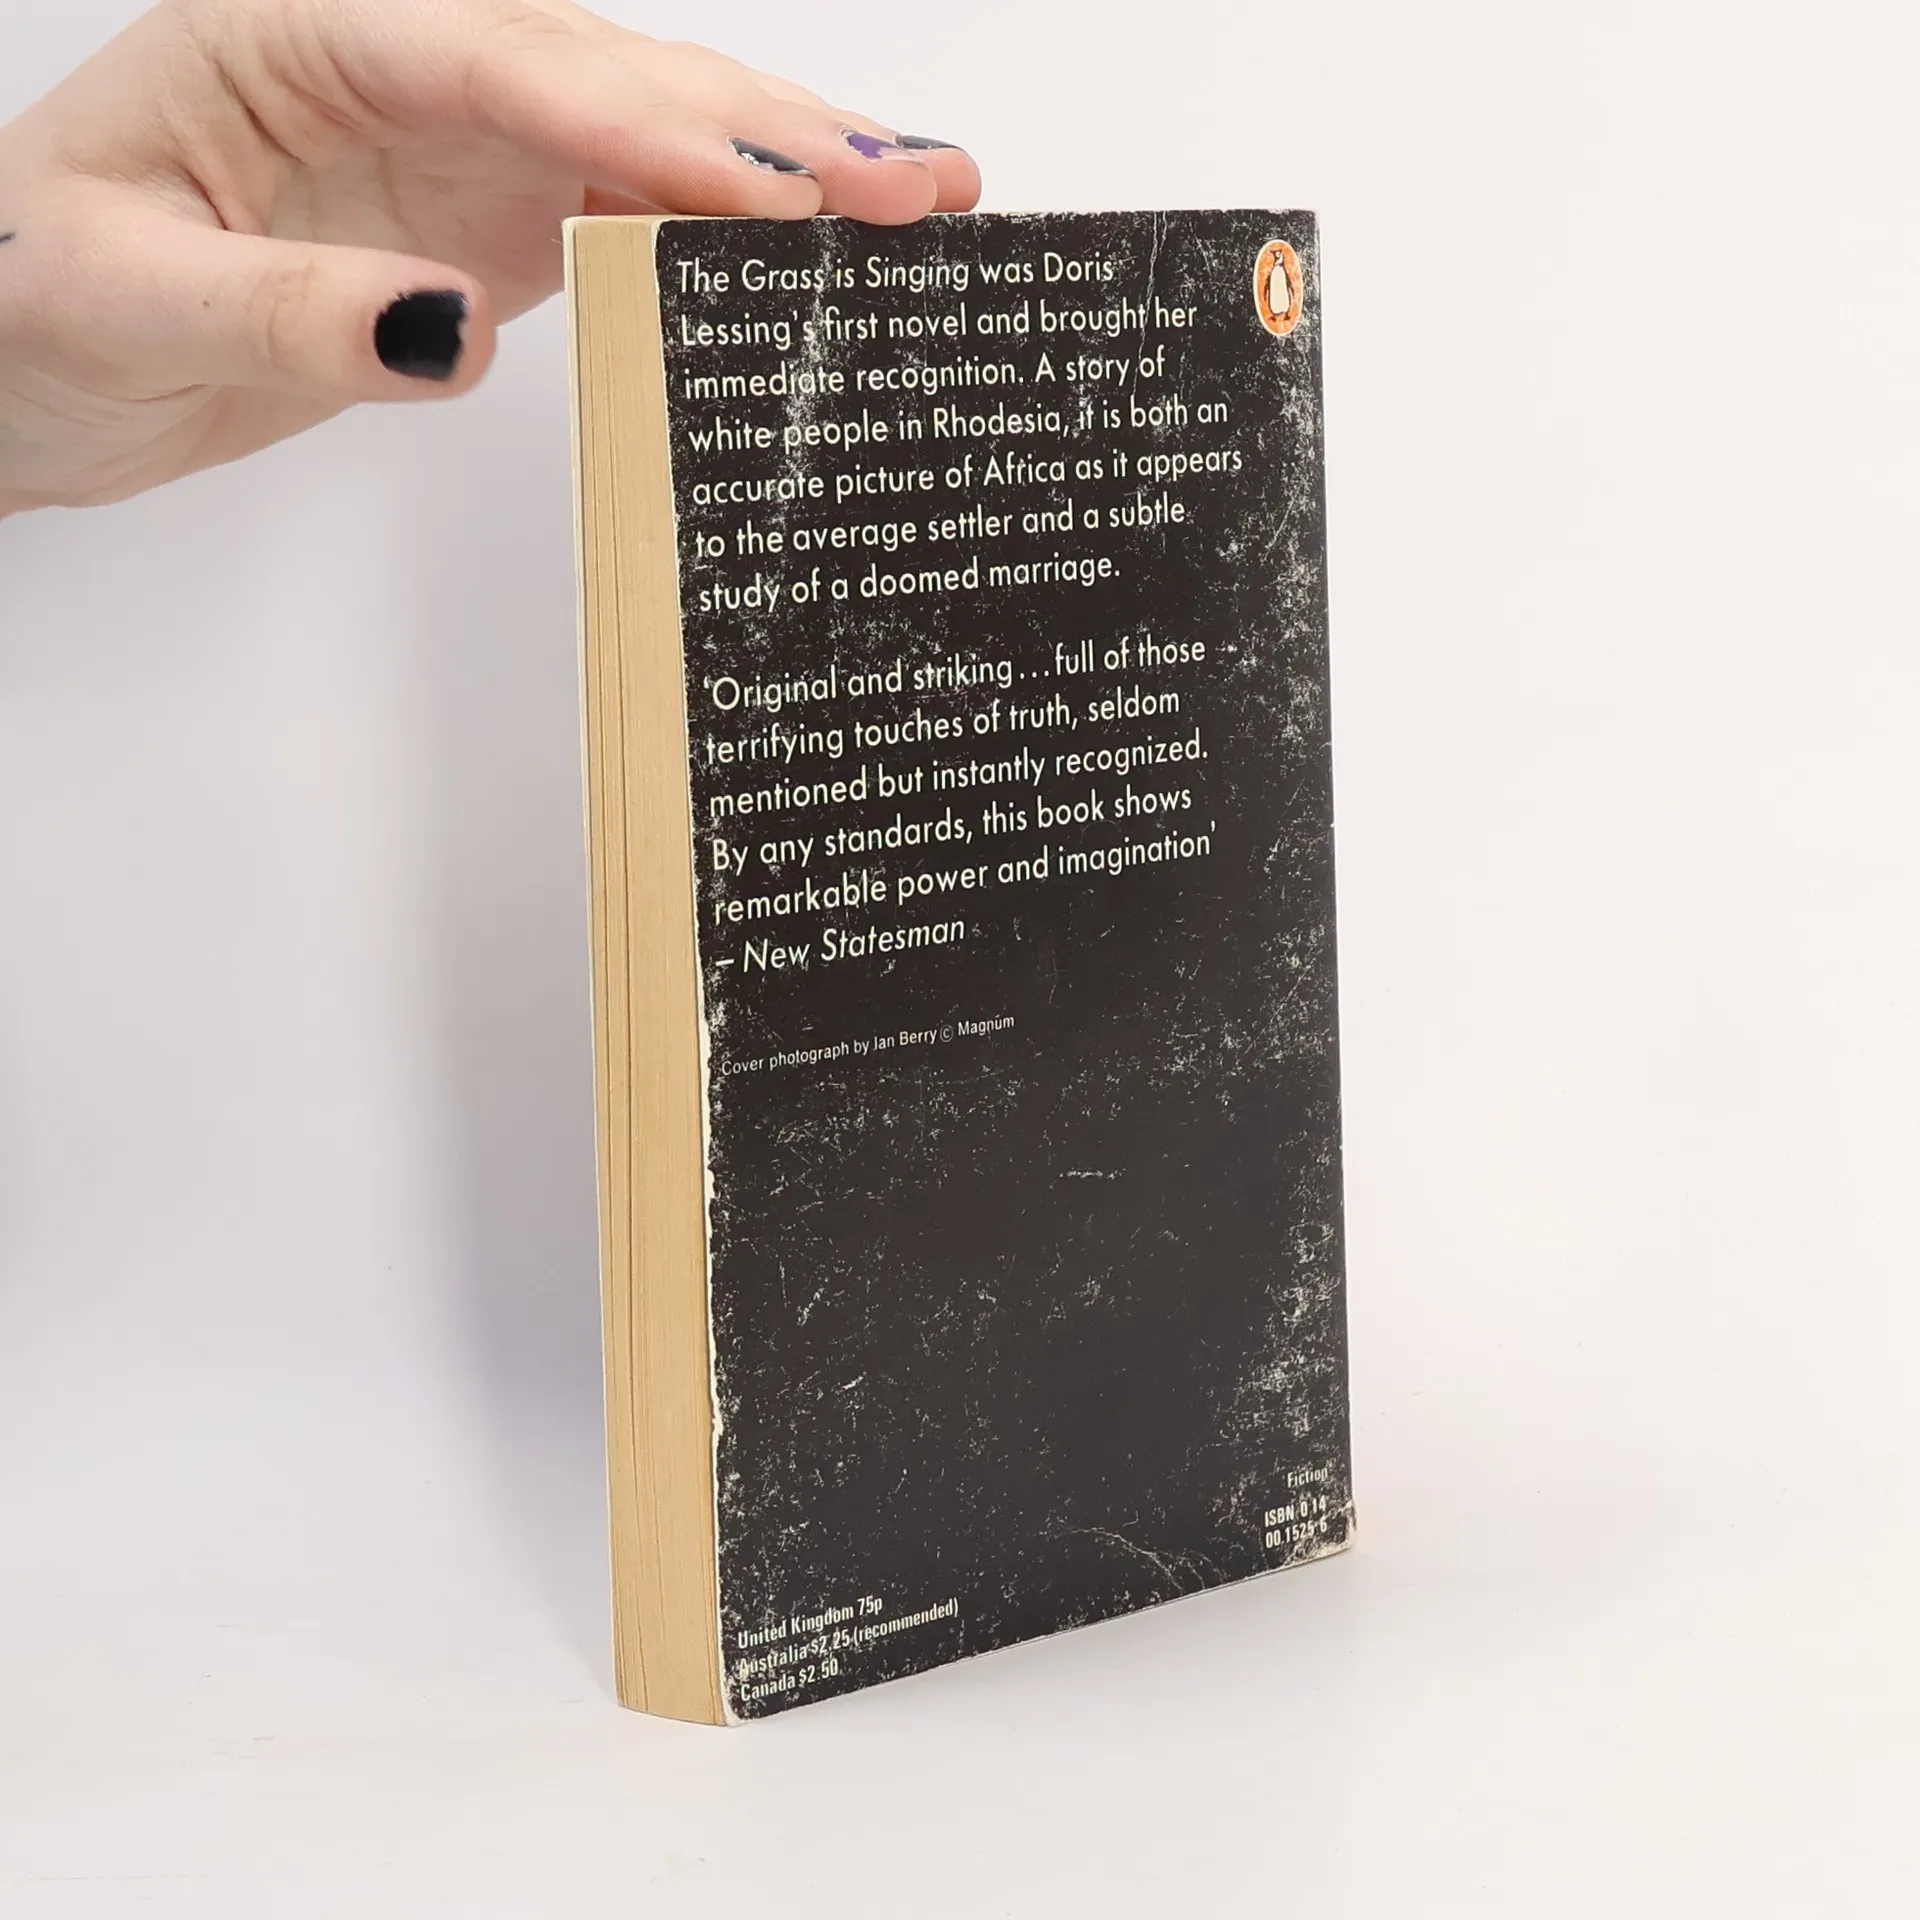 The Grass is Singing was Doris
Lessing's first novel and brought her
immediate recognition. A story of
white people in Rhodesia, it is both an
accurate picture of Africa as it appears
to the average settler and a subtle
study of a doomed marriage.
‘Original and striking...full of those
terrifying touches of truth, seldom
mentioned but instantly recognized.
By any standards, this book shows
remarkable power and imagination’
– New Statesman
Cover photograph by Ian Berry © Magnum
Fiction
ISBN 0 14
00.1525 6
United Kingdom 75p
Australia $2.25 (recommended)
Canada $2.50